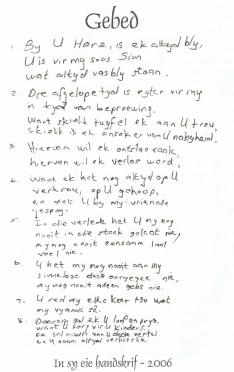 Gebed
1. By U Here, is ek altyd bly,
U is vir my soos Sion
wat altyd vasbly staan.
2. Die afgelope tyd is egter vir my
'n tyd van beproewing.
Want skielik twyfel ek aan U trou,
skielik is ek onseker van U nabyheid.
3. Hiervan wil ek ontslae raak,
hiervan wil ek verlos word.
4. Want ek het nog altyd op U
vertrou, op U gehoop,
en met U by my vriende
gespog.
5. In die verlede het U my nog
nooit in die steek gelaat nie,
my nog nooit eensaam laat
voel nie.
6. U het my nog nooit aan my
sinnelose dade oorgegee nie,
my nog nooit alleen gelos nie.
7. U red my elke keer
my vyande
8. Daarom sal ek U loof en prys,
want U sorg vir U kinders
en U naam altyd verheerlik.
In sy eie handskrif - 2006